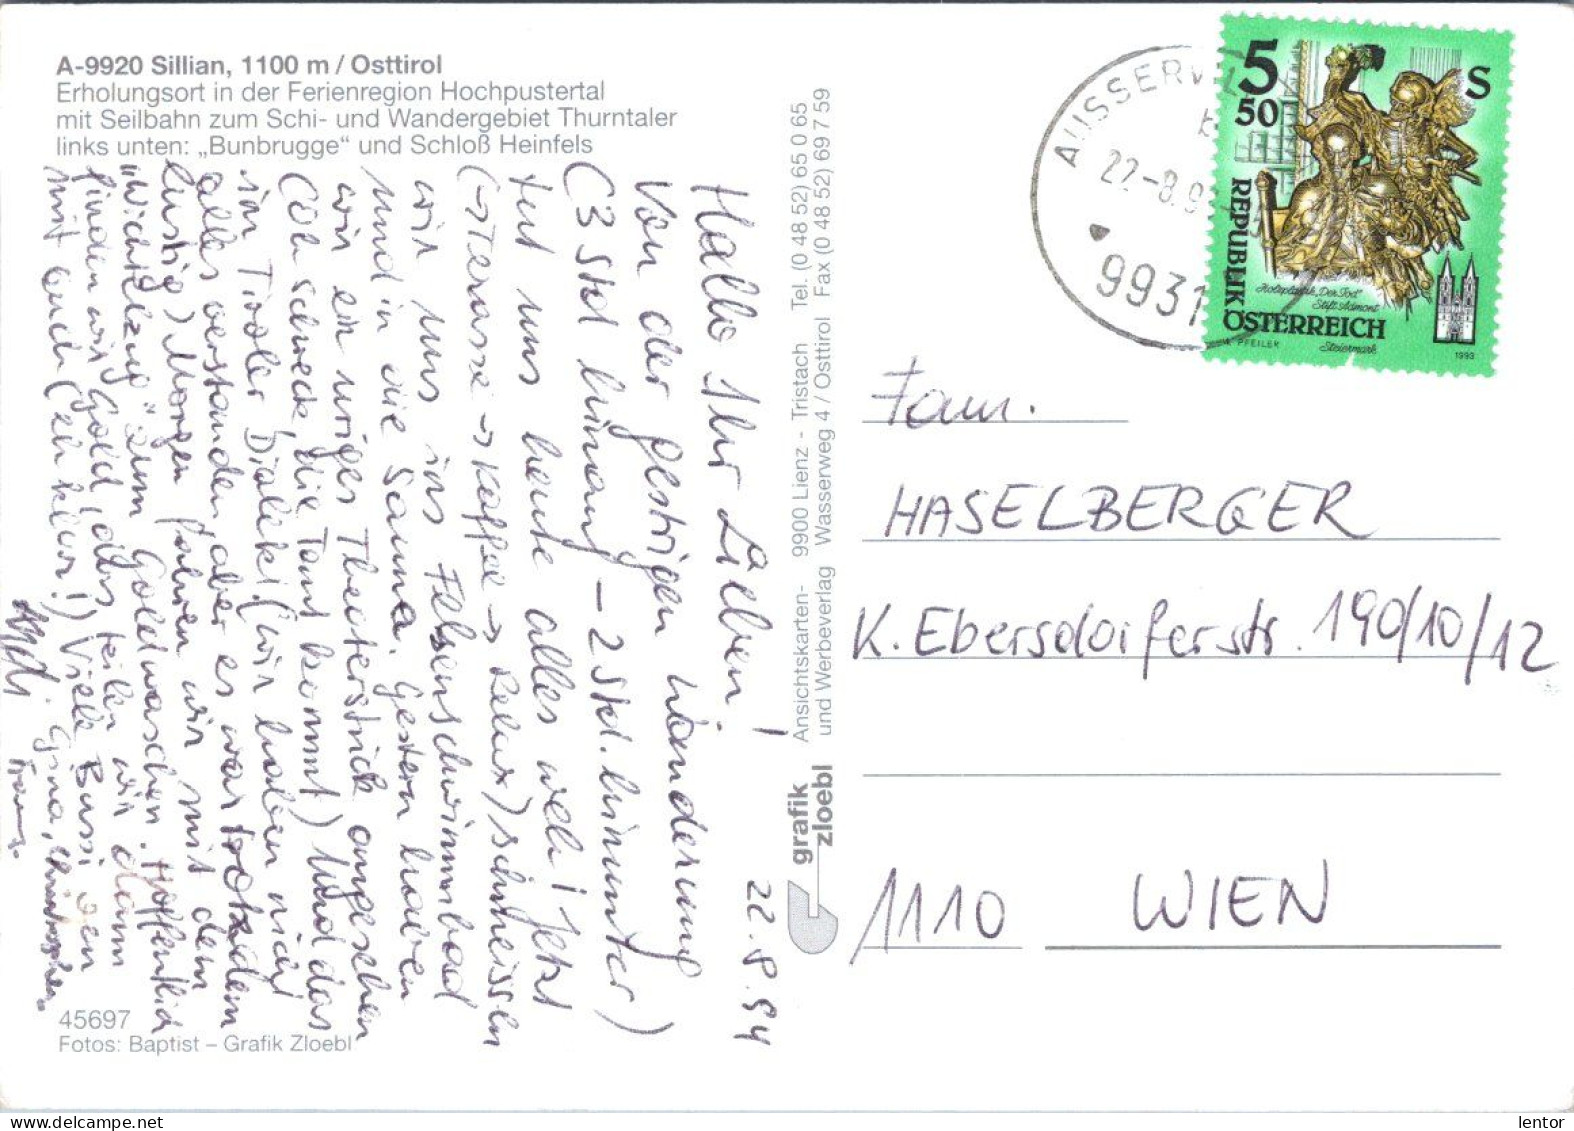 A-9920 Sillian, 1100 m / Osttirol
Erholungsort in der Ferienregion Hochpustertal
mit Seilbahn zum Schi- und Wandergebiet Thurntaler
links unten: „Bunbrugge“ und Schloß Heinfels
22.8.94
Hallo Ihr Lieben!
Von der gestrigen Wanderung
(3 Std hinauf – 2 Std. hinunter)
tut uns heute alles weh! Jetzt
(→ Terasse → Kaffee → Relax) schmeissen
wir uns ins Felsenschwimmbad
und in die Sauna. Gestern haben
wir ein uriges Theaterstück angesehen
(Oh schreck, die Tant kommt) Und das
im Tiroler Dialekt (wir haben nicht
alles verstanden, aber es war trotzdem
lustig) Morgen fahren wir mit dem
"Wichtelzug" zum Goldwaschen. Hoffentlich
finden wir Gold, das teilen wir dann
mit euch (eh klar!) Viele Bussi von
Gina, Christopher
Franz
45697
Fotos: Baptist – Grafik Zloebl
Ansichtskarten- 9900 Lienz - Tristach Tel. (0 48 52) 65 0 65
und Werbeverlag Wasserweg 4 / Osttirol Fax (0 48 52) 69 7 59
grafik
zloebl
AUSSERVILL
22.-8.9
9931
5 50 S
REPUBLIK
ÖSTERREICH
Holzplastik „Der Tod“
Stift Admont
Steiermark
PFEILER
1993
Fam.
HASELBERGER
K. Ebersdorferstr. 190/10/12
1110 WIEN
lentor